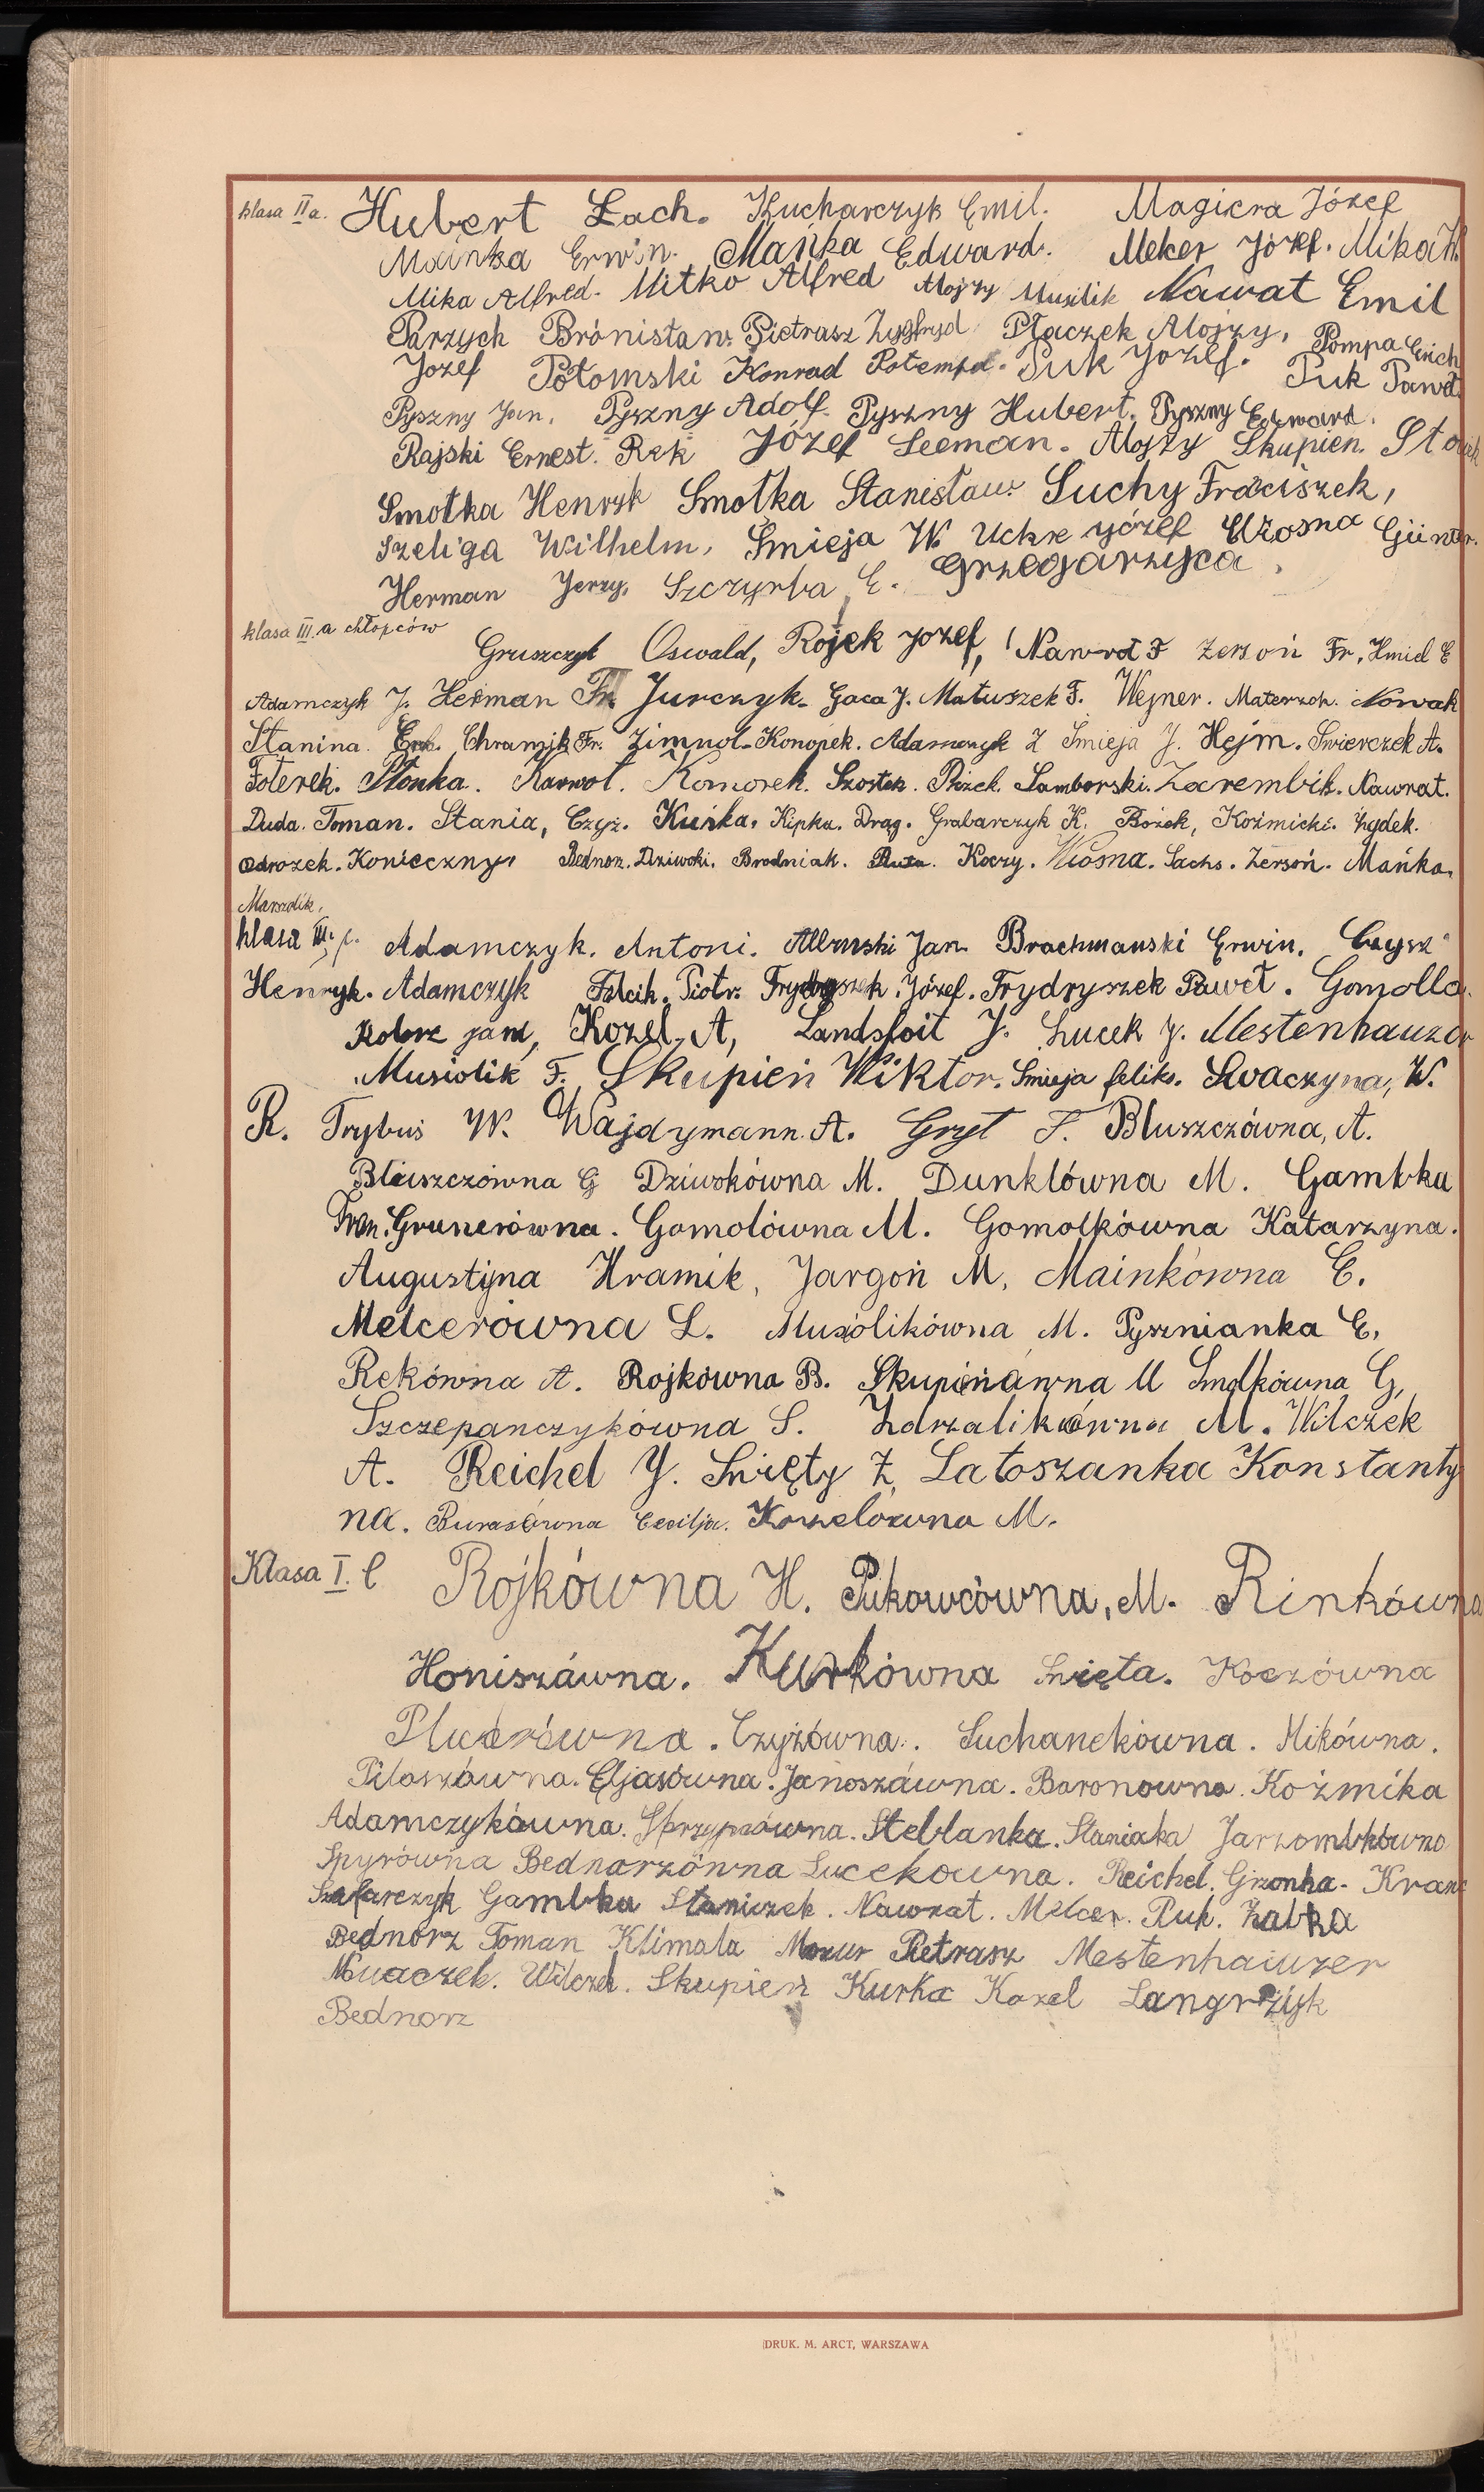 klasa II a. Hubert Lach. Kucharczyk Emil. Magiera Józef
Mainka Erwin. Mańka Edward. Melcer Józef. Mika W.
Mika Alfred. Mitko Alfred Alojzy Musilik Nawat Emil
Parzych Brónisław. Pietrasz Zygfryd Płaczek Alojzy, Pompa Erich
Jozef Potomski Konrad Potempa. Puk Jozef. Puk Paweł.
Pyszny Jan, Pyszny Adolf. Pyszny Hubert. Pyszny Edward.
Rajski Ernest. Rek Józef Seeman. Alojzy Skupien.
Smołka Henryk Smołka Stanisław. Suchy Fraciszek,
Szeliga Wilhelm, Śmieja W. józef Günter.
Herman Jerzy, Szczyrba E. Grzegarzyca,
klasa III. a chłopców
Gruszczyk Oswald, Rojek Jozef, Nawrot F Zerson Fr, Hmiel E
Adamczyk J. Herman Fr. Jurczyk. Gaca J. Matuszek F. Wejner. Materzok. Nowak
Stanina. Chramzik Fr. Zimnol. Konopek. Adamczyk Z Śmieja J. Hejm. Swierczek A.
Foterek. Płonka. Karwot. Komorek. Szostek. Samborski. Zarembik. Nawrat.
Duda. Toman. Stania, Czyż. Kuśka. Kipka. Drag. Grabarczyk K. Bożek, Koźmicki. Żydek.
Odrozek. Konieczny. Bednorz. Dziwoki. Brodniak. Koczy. Wiosna. Sachs. Zersoń. Mańka.
Marszolik,
klasa III. Adamczyk. Antoni. Jan. Brachmanski Erwin. Czysz
Henryk. Adamczyk Piotr. Józef. Frydryszek Paweł. Gomolla.
Kobrc jan, Kozel, A, Landsfoit J. Lucek J. Mestenhauzer
Musiolik F. Skupień Wiktor. Śmieja feliks. Swaczyna, W.
R. Trybuś W. Wajdymann. A. Gryt F. Bluszczówna, A.
Bluszczówna G Dziwokówna M. Dunklówna M. Gambka
Fran. Grunerówna. Gomolówna M. Gomolkówna Katarzyna.
Augustyna Hramik, Jargoń M, Mainkówna E.
Melcerówna L. Musiolikówna M. Pysznianka E,
Rekówna A. Rojkówna B. Skupińówna M Smolkówna G,
Szczepanczykówna S. Zdrzalikówna M. Wilczek
A. Reichel J. Święty Z, Latoszanka Konstanty
na. Burasówna Cecilja. Kozelówna M.
Klasa I. Rojkówna H. Pukowcówna, M. Rinkówna
Honiszówna. Kurkówna Święta. Koczówna
Plucerówna. Czyżówna. Suchanekówna. Mikówna.
Piloszówna. Eljasówna. Janoszówna. Baronowna. Koźmika
Adamczykówna. Steblanka. Staniaka Jarzombkówna
Spyrówna Bednarzówna Lucekowna. Reichel. Grzonka. Kranc
Szafarczyk Gambka Staniczek. Nawrat. Melcer. Puk. Żabka
Bednorz Toman Klimala Mazur Pietrasz Mestenhauzer
Wilczek. Skupień Kurka Kozel Langrzyk
Bednorz
DRUK. M. ARCT, WARSZAWA